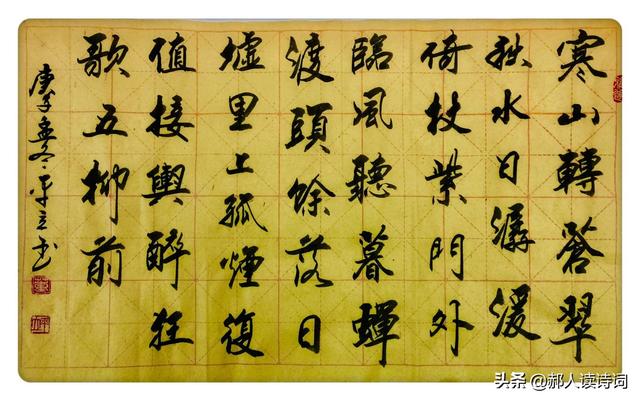 寒山轉蒼翠
秋水日潺湲
倚杖柴門外
臨風聽暮蟬
渡頭餘落日
墟里上孤煙復
值接輿醉狂
歌五柳前
庚子孟冬平立书
头条 @郝人读诗词